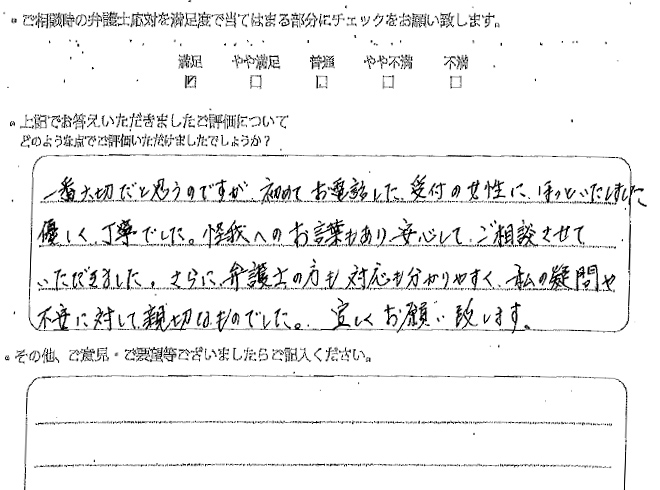 ご相談時の弁護士応対を満足度で当てはまる部分にチェックをお願い致します。
満足 やや満足 普通 やや不満 不満
上記でお答えいただきましたご評価について
どのような点でご評価いただけましたでしょうか?
一番大切だと思うのですが、初めてお電話した、受付の女性に、ほっといたしました
優しく、丁寧でした。怪我へのお言葉もあり、安心して、ご相談させて
いただきました。さらに、弁護士の方も対応も分かりやすく、私の疑問や
不安に対して親切なものでした。宜しくお願い致します。
その他、ご意見・ご要望等ございましたらご記入ください。